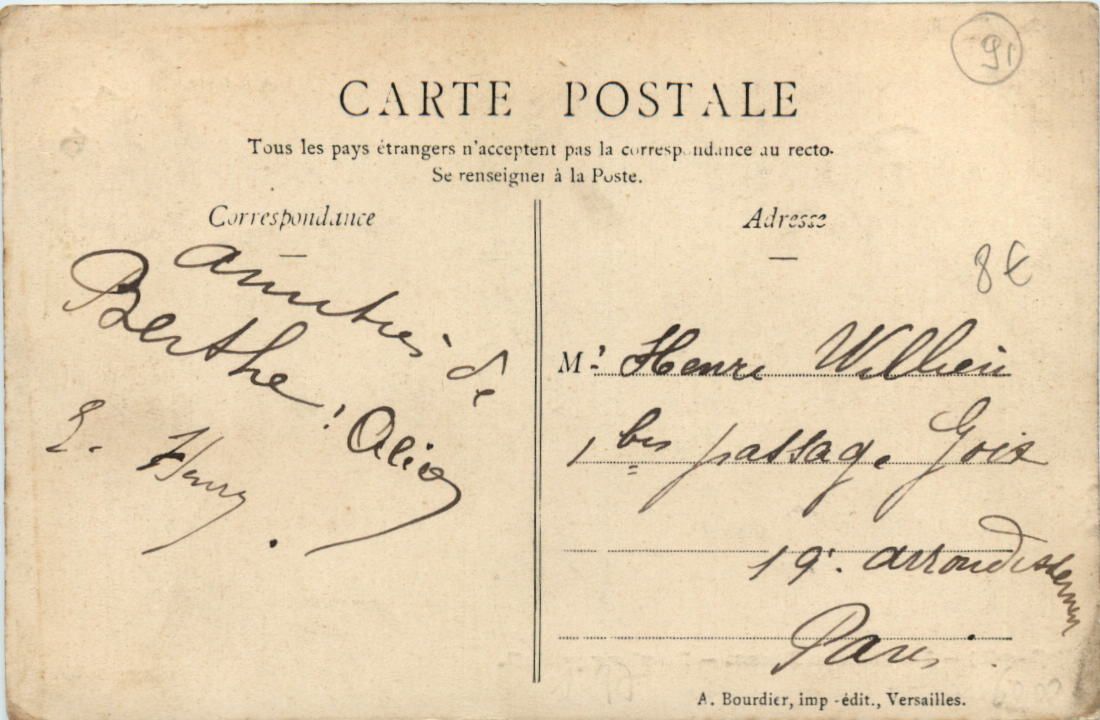 91
CARTE POSTALE
Tous les pays étrangers n'acceptent pas la correspondance au recto.
Se renseigner à la Poste.
Correspondance
Adresse
8€
de
Berthe
E. Henry
Mr Henri
1 bis passage
19e arrondissement
Paris
A. Bourdier, imp-édit., Versailles.